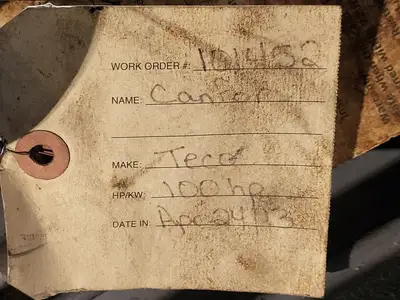 WORK ORDER #: 101432
NAME: Canfor
MAKE: Teco
HP/KW: 100hp
DATE IN: Apr 24/13